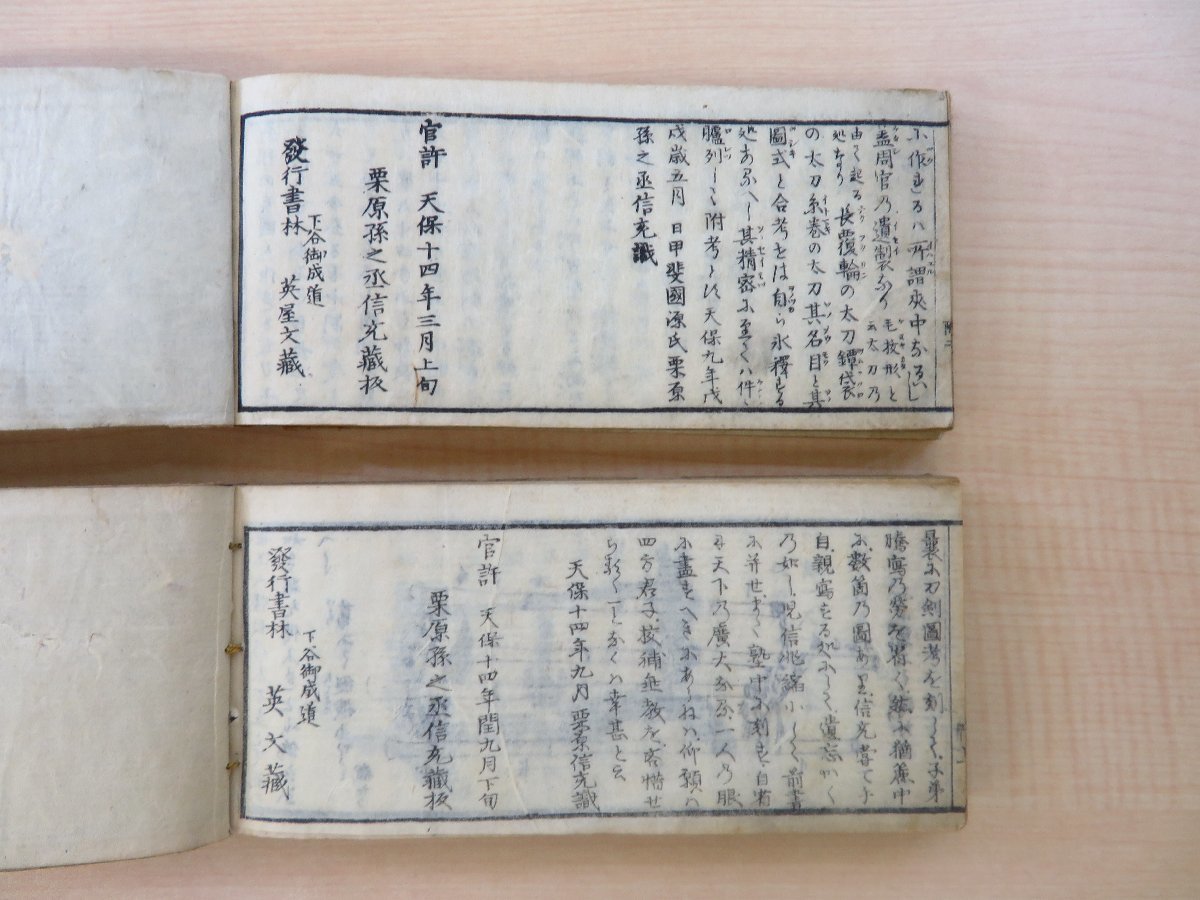 小作まるハ所謂夾中なるべし
蓋周官の遺製なり毛抜形と
由て起る云太刀乃
処なり長覆輪の太刀鐔袋
の太刀糸巻の太刀其名目と其
圖式と合考せは自ら氷釋する
処あるへし其精密に至てハ件〻
臚列して附考とす天保九年戊
戌歳五月日甲斐國源氏栗原
孫之丞信充識
官許 天保十四年三月上旬
栗原孫之丞信充藏板
下谷御成道
發行書林 英屋文藏
曩に刀劍圖考を刻して子弟
謄寫乃勞を省く然に猶篋中
に數箇乃圖あり信充嘗て手
自親寫する処にして遺忘かく
乃如し
に并せまて塾中に刻す自省
に天下乃廣大なる一人乃眼
に盡すへきにあらねハ仰願ハ
四方君子校補垂教を吝惜せ
られることなくハ幸甚と云
天保十四年九月 栗原信充識
官許 天保十四年閏九月下旬
栗原孫之丞信充藏板
下谷御成道
發行書林 英文藏